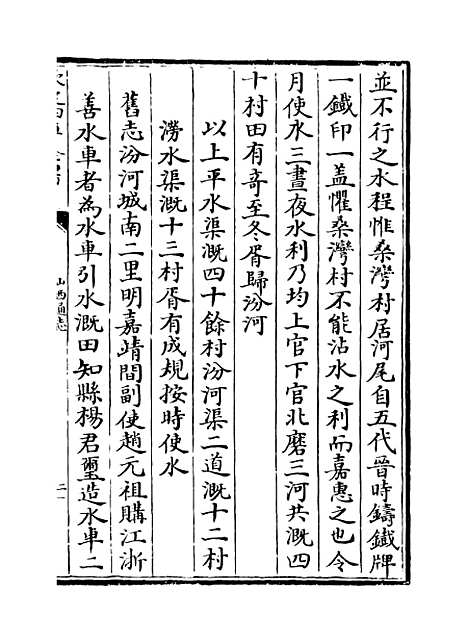 並不行之水程惟桑灣村居河尾自五代晉時鑄鐵牌
一鐵印一盖懼桑灣村不能沾水之利而嘉惠之也令
月使水三晝夜水利乃均上官下官北磨三河共溉四
十村田有竒至冬胥歸汾河
以上平水渠溉四十餘村汾河渠二道溉十二村
澇水渠溉十三村胥有成規按時使水
舊志汾河城南二里明嘉靖間副使趙元祖購江浙
善水車者為水車引水溉田知縣楊君璽造水車二
山西通志